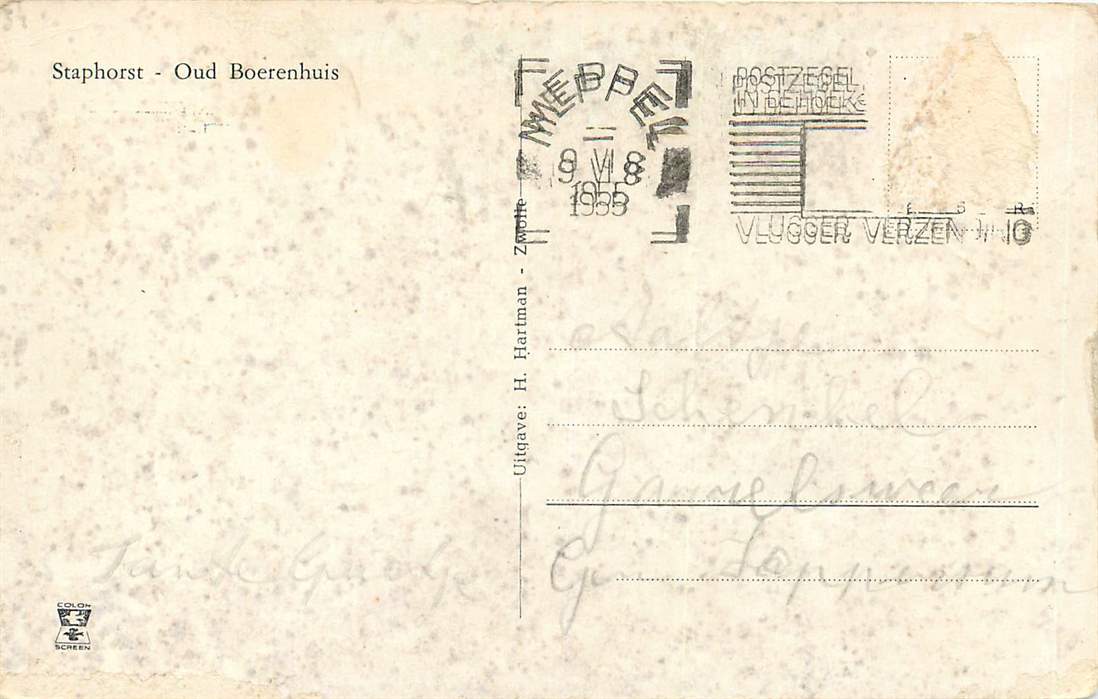 Staphorst - Oud Boerenhuis
MEPPEL
9 VI 8
1955
POSTZEGEL
IN DE HOEK
VLUGGER VERZENDING
Uitgave: H. Hartman - Zwolle
Schenkel
Garrelsweer
Tante
Gem. Loppersum
COLOR
SCREEN